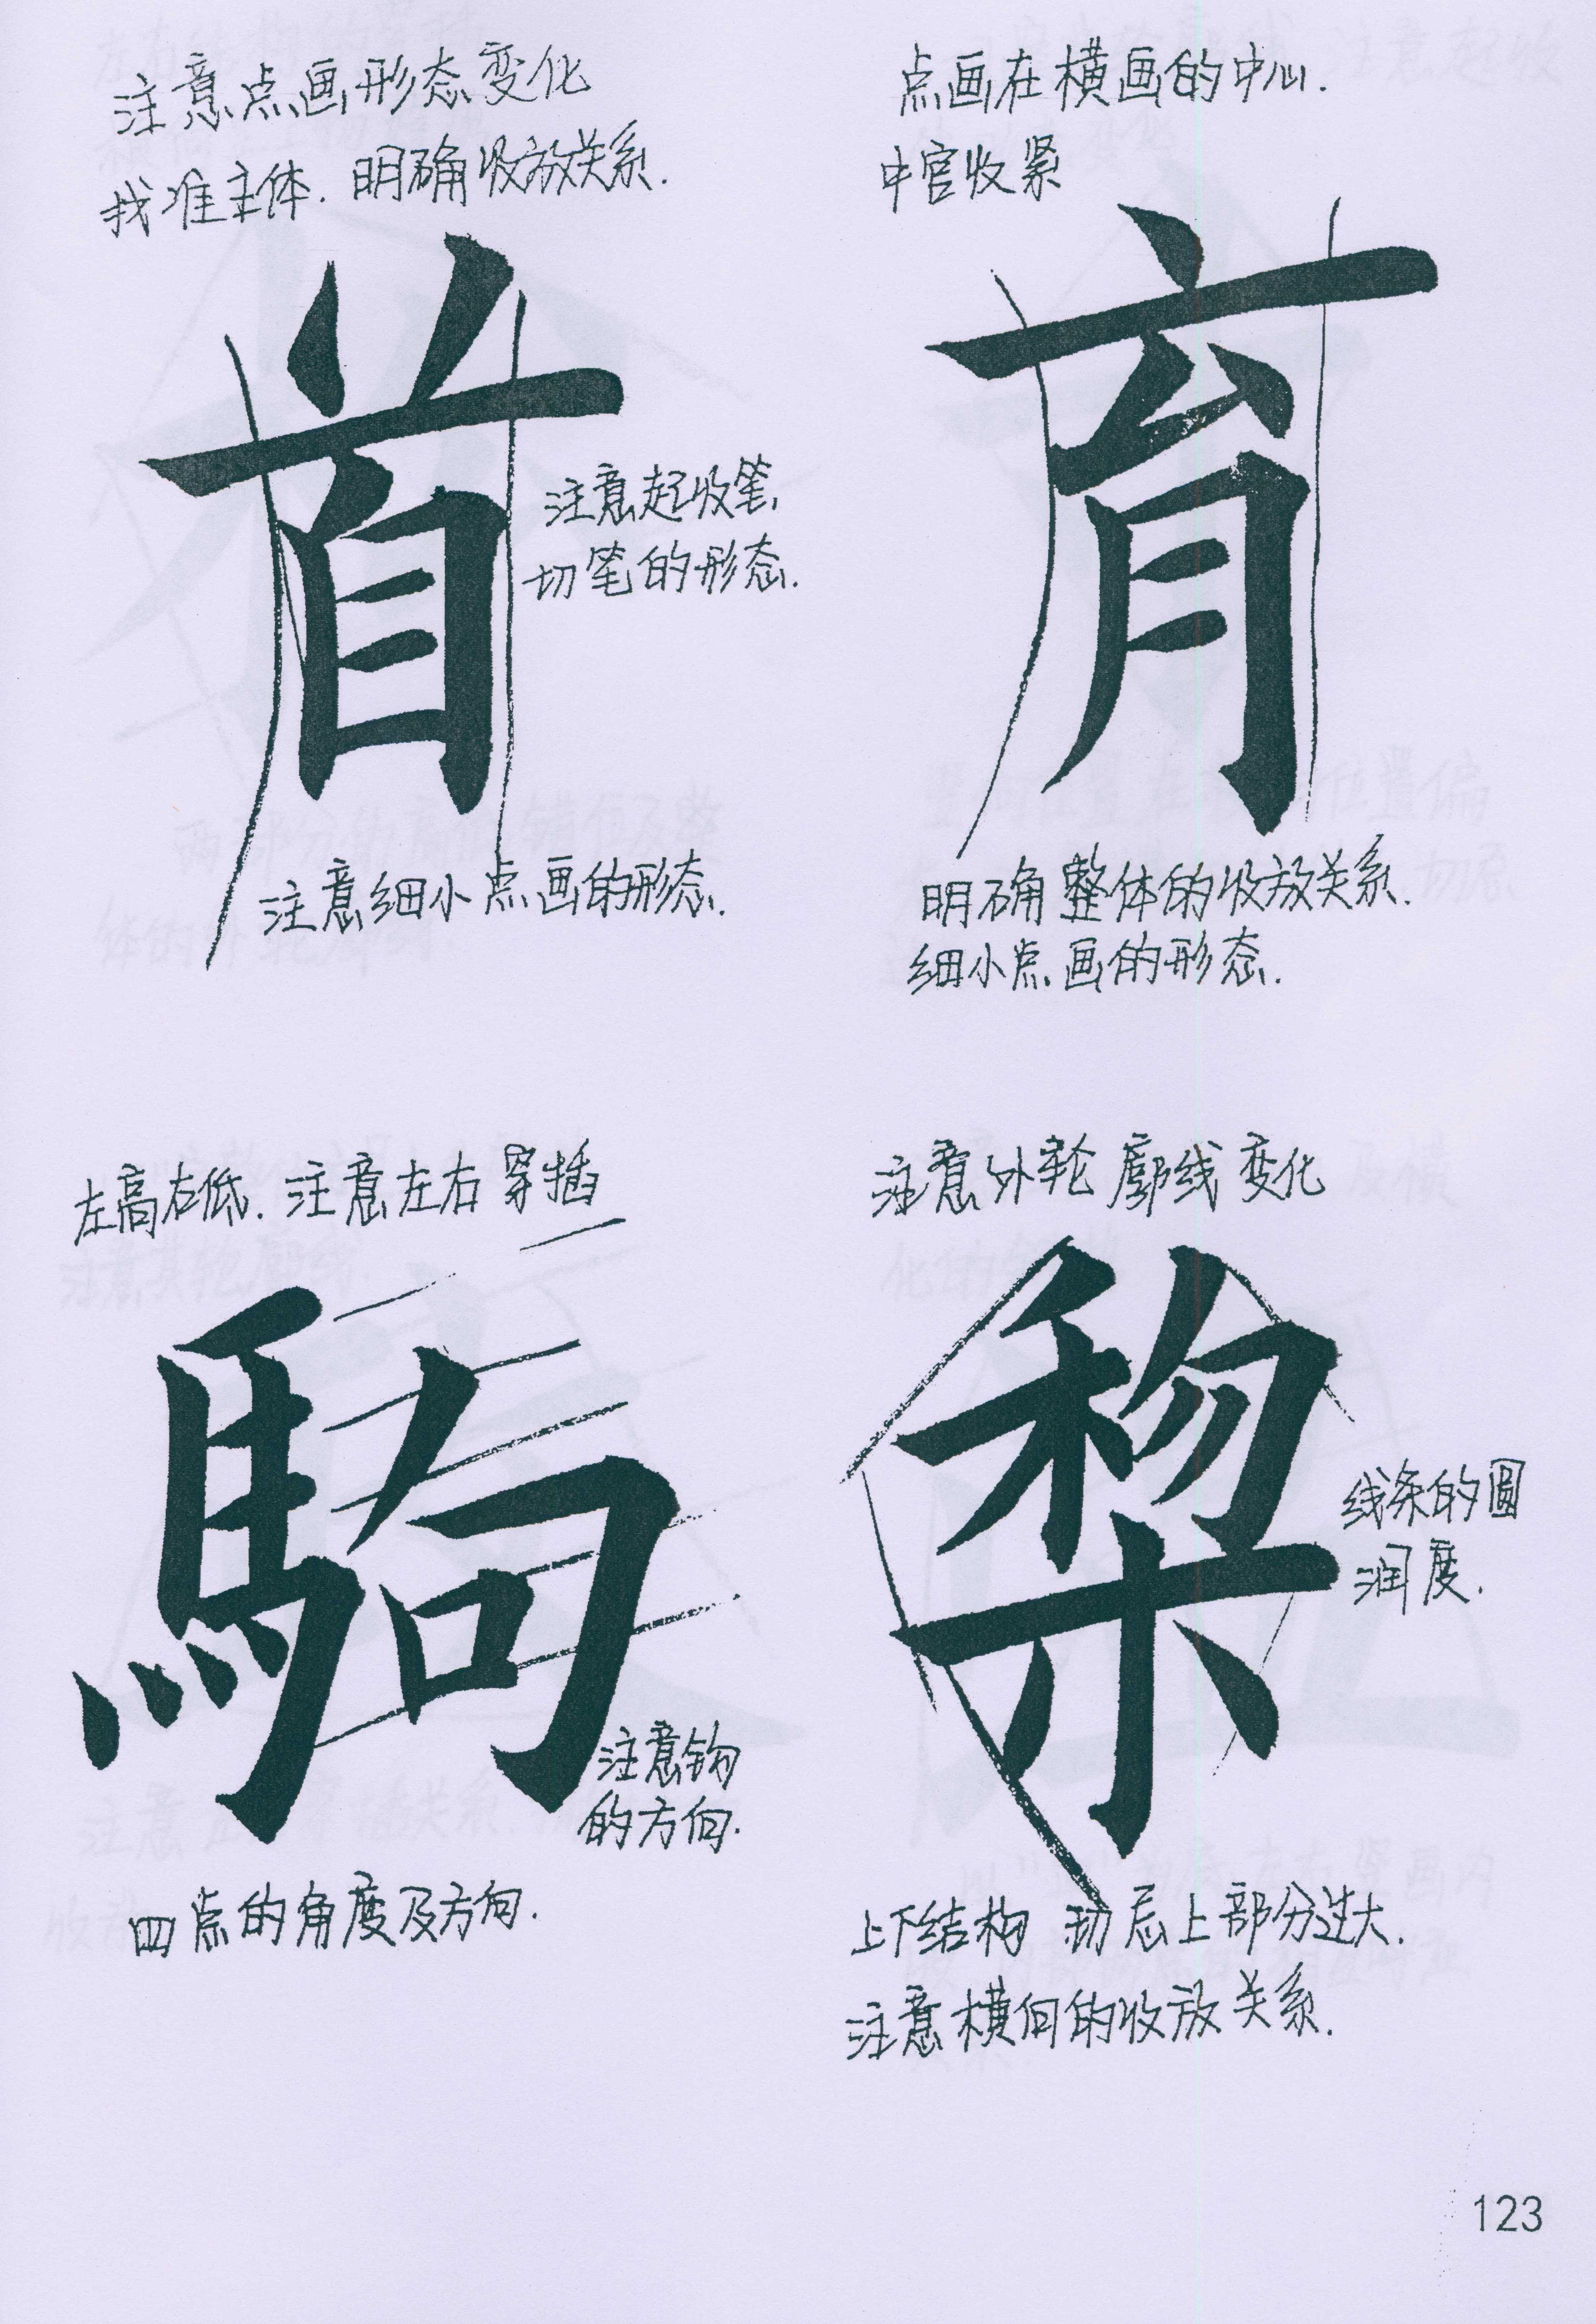 注意点画形态变化
找准主体.明确收放关系.
首
注意起收笔,
切笔的形态.
注意细小点画的形态.
点画在横画的中心.
中宫收紧
育
明确整体的收放关系.
细小点画的形态.
左高右低.注意左右穿插
駒
注意钩
的方向.
四点的角度及方向.
注意外轮廓线变化
棃
线条的圆
润度.
上下结构 切忌上部分过大.
注意横向的收放关系.
123